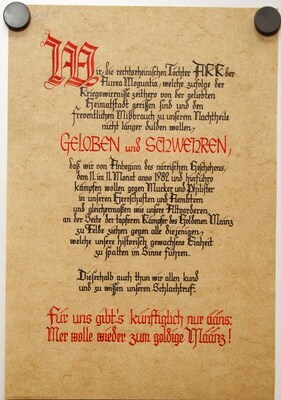 Wir, die rechtsrheinischen Töchter AKK der
Aurea Moguntia, welche zufolge der
Kriegswirrnisse zeithero von der geliebten
Heimatstadt gerissen sind und den
froventlichen Mißbrauch zu unserem Nachtheile
nicht länger dulden wollen,
GELOBEN und SCHWEHREN,
daß wir von Anbeginn des närrischen Geschehens,
dem 11. im 11. Monat anno 1982 und hinführo
kämpfen wollen gegen Mucker und Philister
in unseren Herrschaften und Aembtern
und gleichermaßen wie unsere Altvorderen
an der Seite der tapferen Kämpfer des Goldenen Mainz
zu Felde ziehen gegen alle diejenigen,
welche unsere historisch gewachsene Einheit
zu spalten im Sinne führen.
Dieserhalb auch thun wir allen kund
und zu wissen unseren Schlachtruf:
Für uns gibt's künfftiglich nur ääns:
Mer wolle wieder zum goldige Määnz!